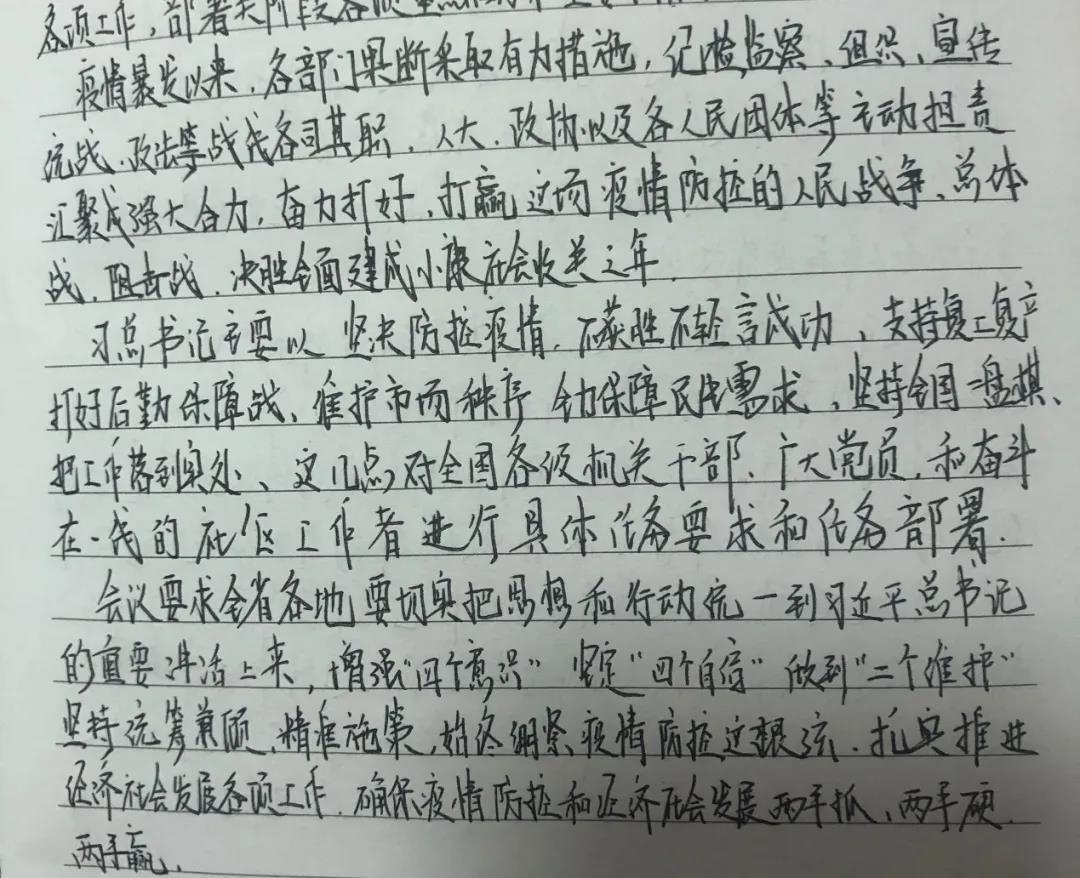 各项工作，部署关阶段各项重点
疫情暴发以来，各部门果断采取有力措施，记检监察、组织、宣传
统战、政法等战线各司其职，人大、政协以及各人民团体等主动担责
汇聚成强大合力，奋力打好、打赢这场疫情防控的人民战争、总体
战、阻击战，决胜全面建成小康社会收关之年
习总书记主要以坚决防控疫情，不获胜不轻言成功，支持复工复产
打好后勤保障战、维护市场秩序 全力保障民生需求，坚持全国一盘棋、
把工作落到实处、这几点对全国各级机关干部、广大党员，和奋斗
在一线的社区工作者进行具体任务要求和任务部署.
会议要求全省各地要切实把思想和行动统一到习近平总书记
的重要讲话上来，增强“四个意识”坚定“四个自信”做到“二个维护”
坚持统筹兼顾，精准施策，始终绷紧疫情防控这根弦，扎实推进
经济社会发展各项工作，确保疫情防控和经济社会发展两手抓、两手硬
两手赢.